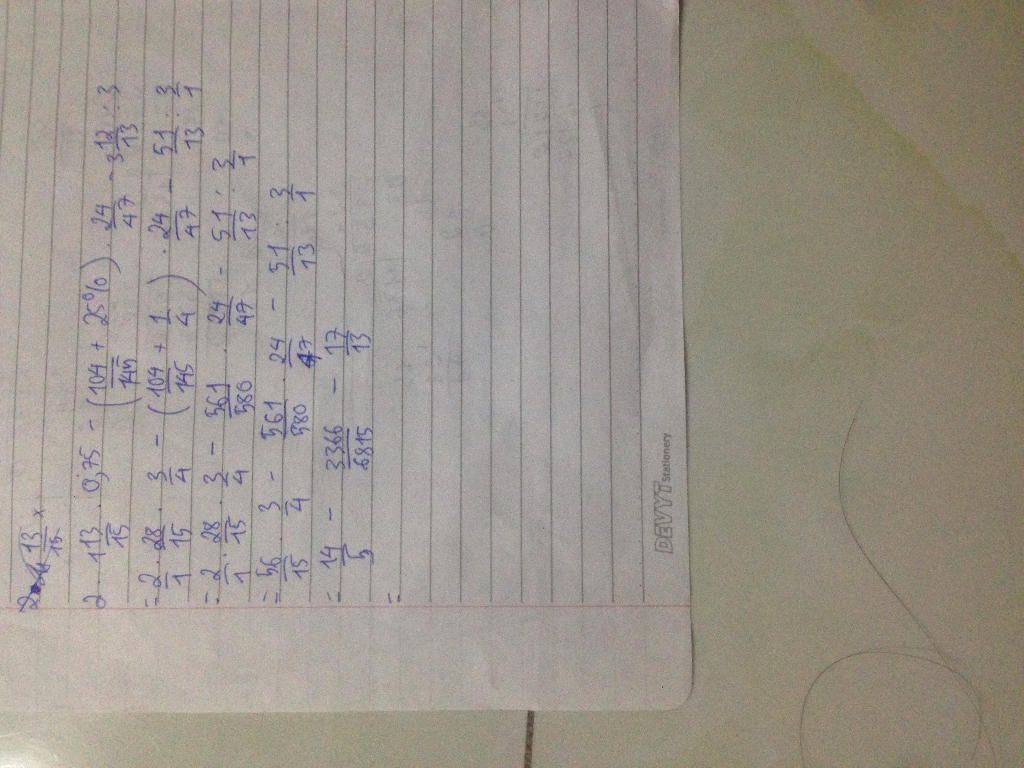 2 · 1 13/15 · 0,75 - (104/145 + 25%) · 24/47 - 3 12/13 : 3
= 2/1 · 28/15 · 3/4 - (104/145 + 1/4) · 24/47 - 51/13 : 3/1
= 2/1 · 28/15 · 3/4 - 561/580 · 24/47 - 51/13 : 3/1
= 56/15 · 3/4 - 561/580 · 24/47 - 51/13 : 3/1
= 14/5 - 3366/6815 - 17/13
=
DEVYT Stationery